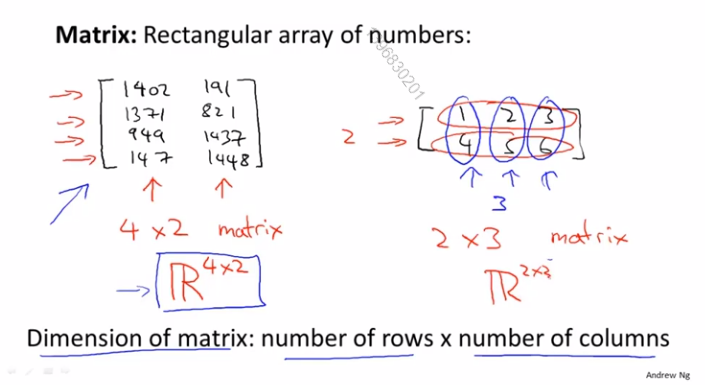 Matrix: Rectangular array of numbers:
96830201
1402 191
1371 821
949 1437
147 1448
2
1 2 3
4 5 6
3
4 x 2 matrix
2 x 3 matrix
ℝ^4×2
ℝ^2×3
Dimension of matrix: number of rows x number of columns
Andrew Ng